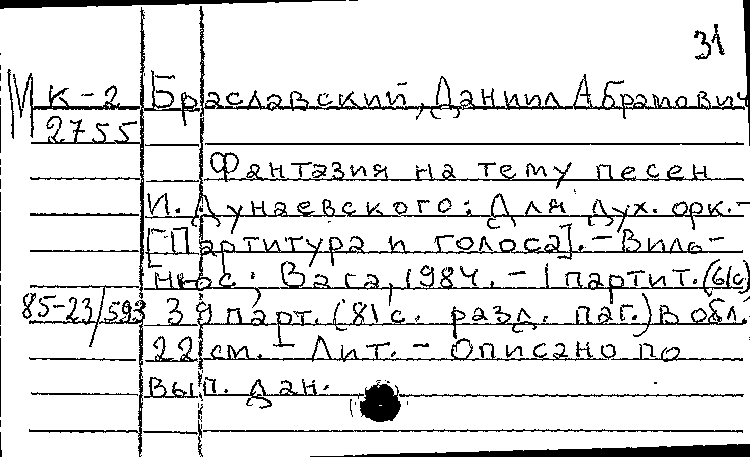 31
М К-2 Браславский, Даниил Абрамович
2755
Фантазия на тему песен
И. Дунаевского: Для дух. орк.-
[Партитура и голоса]. - Виль-
нюс; Вага, 1984. - 1 партит. (61с)
85-23/593 39 парт. (81 с. разд. паг.) в обл.
22 см. - Лит. - Описано по
вып. дан.